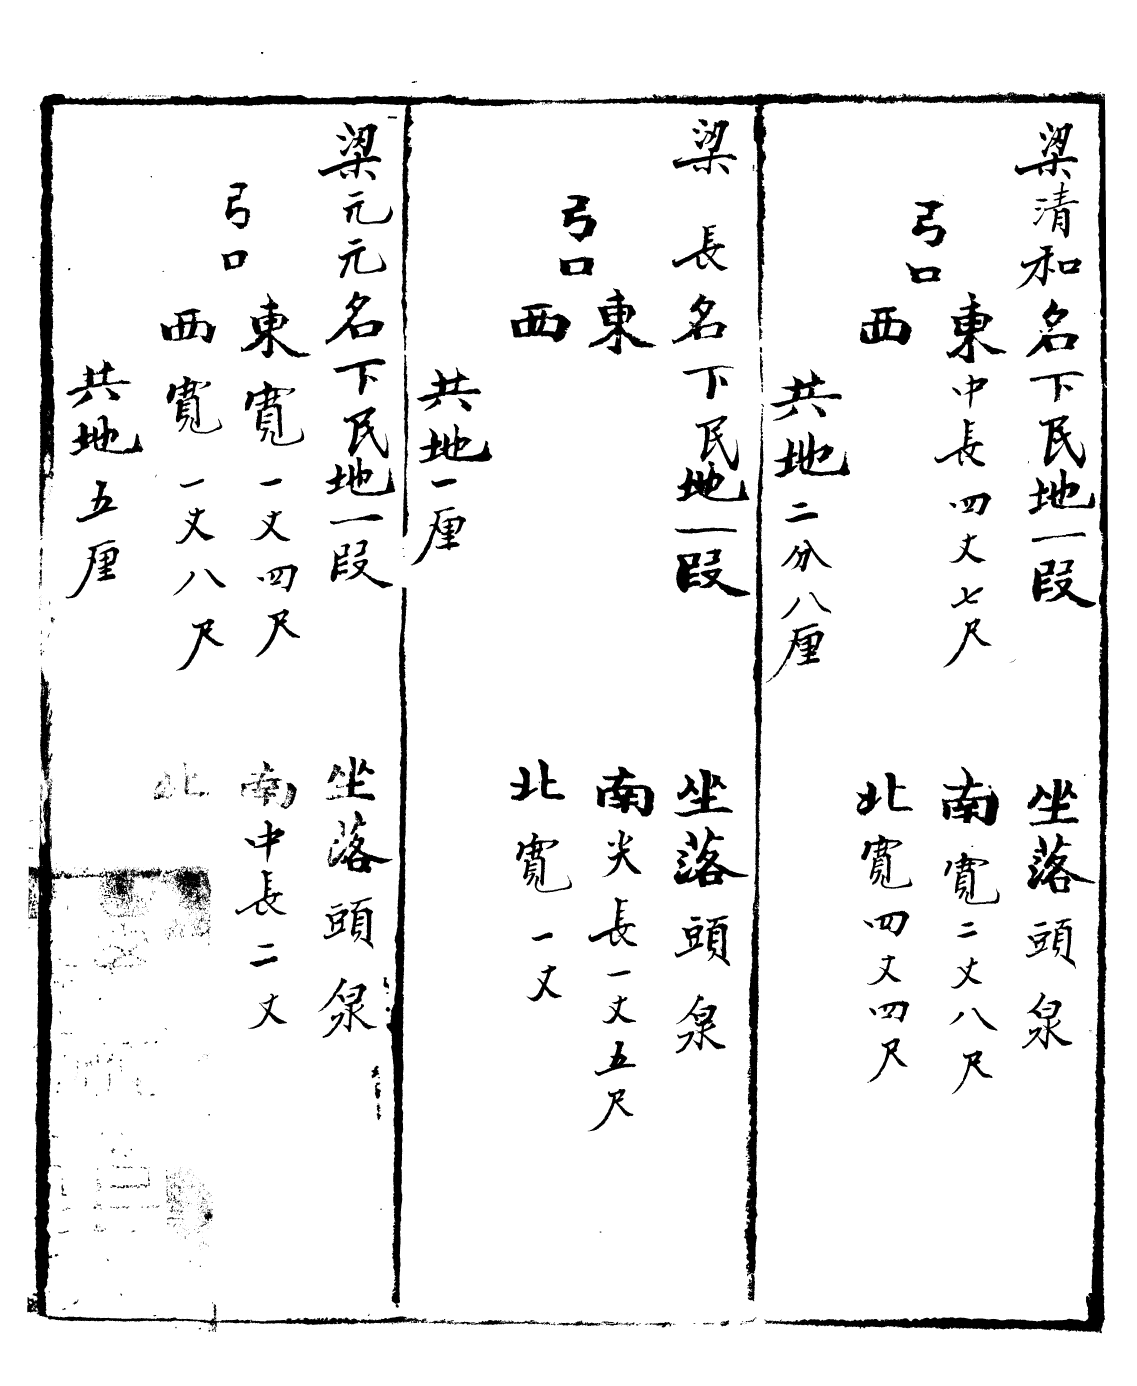 梁清和名下民地一段 坐落頭泉
弓口
東中長四丈七尺 南寬二丈八尺
西 北寬四丈四尺
共地二分八厘
梁長名下民地一段 坐落頭泉
弓口
東 南尖長一丈五尺
西 北寬一丈
共地一厘
梁元元名下民地一段 坐落頭泉
弓口
東寬一丈四尺 南中長二丈
西寬一丈八尺 北
共地五厘